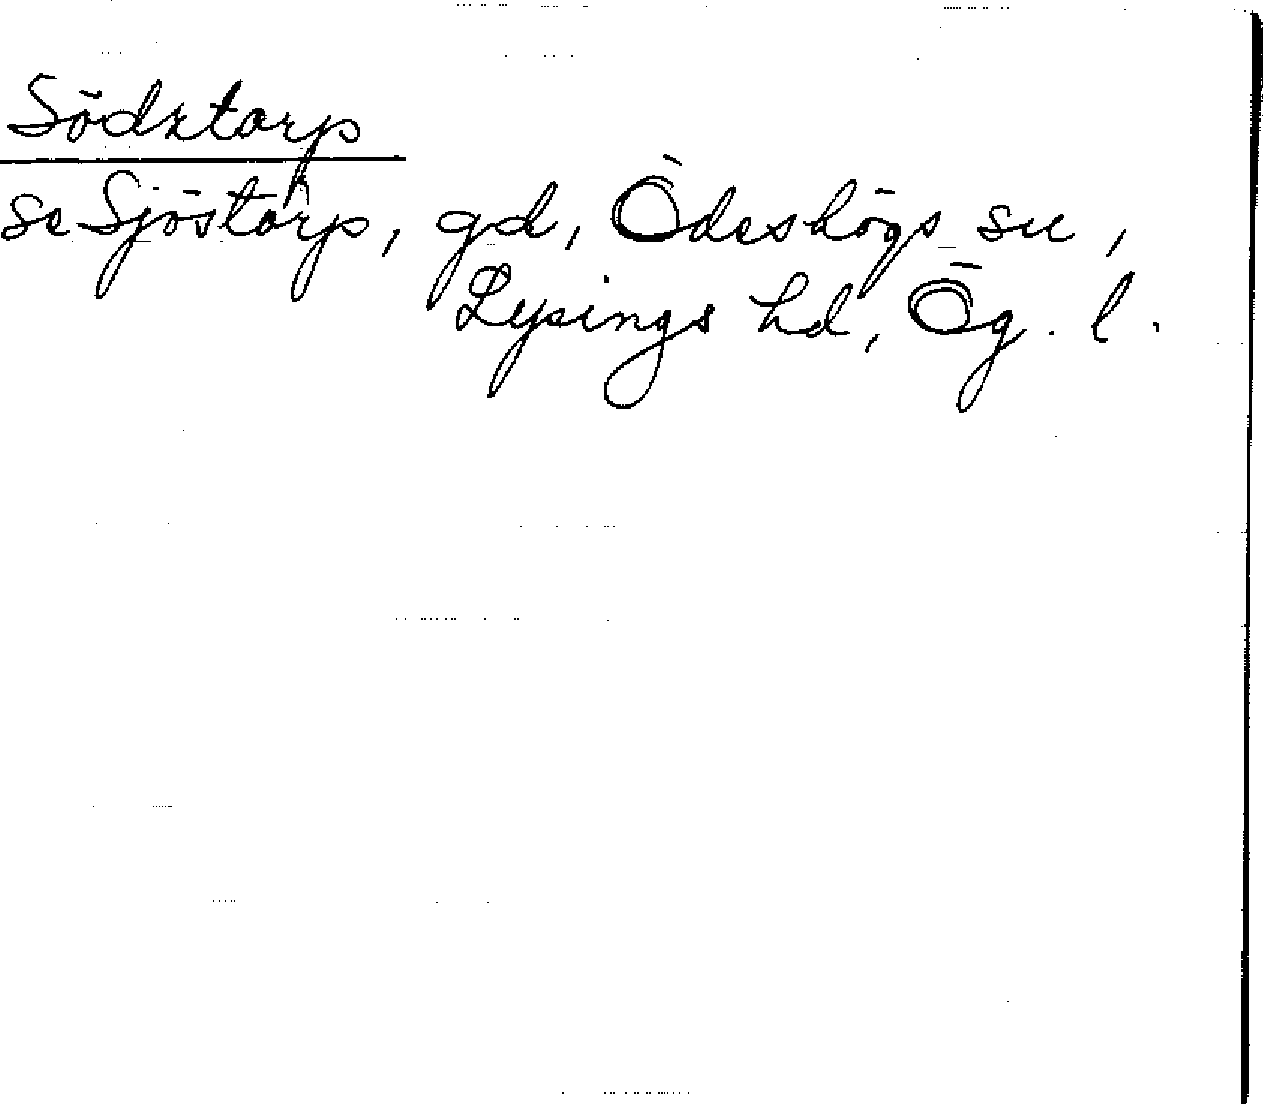 Södztorp
se Sjöstorp, gd, Ödeshögs sn,
Lysings hd, Ög. l.